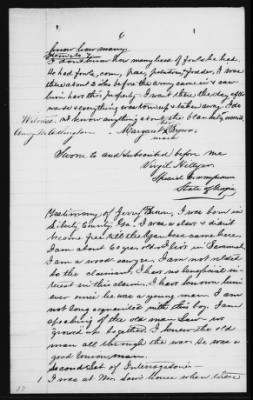 6
know how many
I dont know how many head of fowls he had.
He had fowls, corn, peas, potatoes, fodder, I was
there about 2 wks before the army came in & saw
him have this property. I went there the day after
wards & everything was & taken away. I do
Witness not know anything about the
Amy Washington Margaret X Brown
mark
Sworn to and subscribed before me
Virgil Hillyer
Special Commissioner
State of Georgia
Testimony of Brown, I was born in
Liberty County Ga. I was a slave & didnt
become free till the Yankees came here.
I am about 60 years old. I live in
I am a wood sawyer. I am not related
to the claimant. I have no beneficial in-
terest in this claim. I have known him
ever since he was a young man. I am
not long acquainted with this boy. I am
speaking of the old man Sam. We
growed up together. I knew the old
man all through the war. He was a
good Union man.
Second Set of Interrogatories
1 I was at Mr house when these